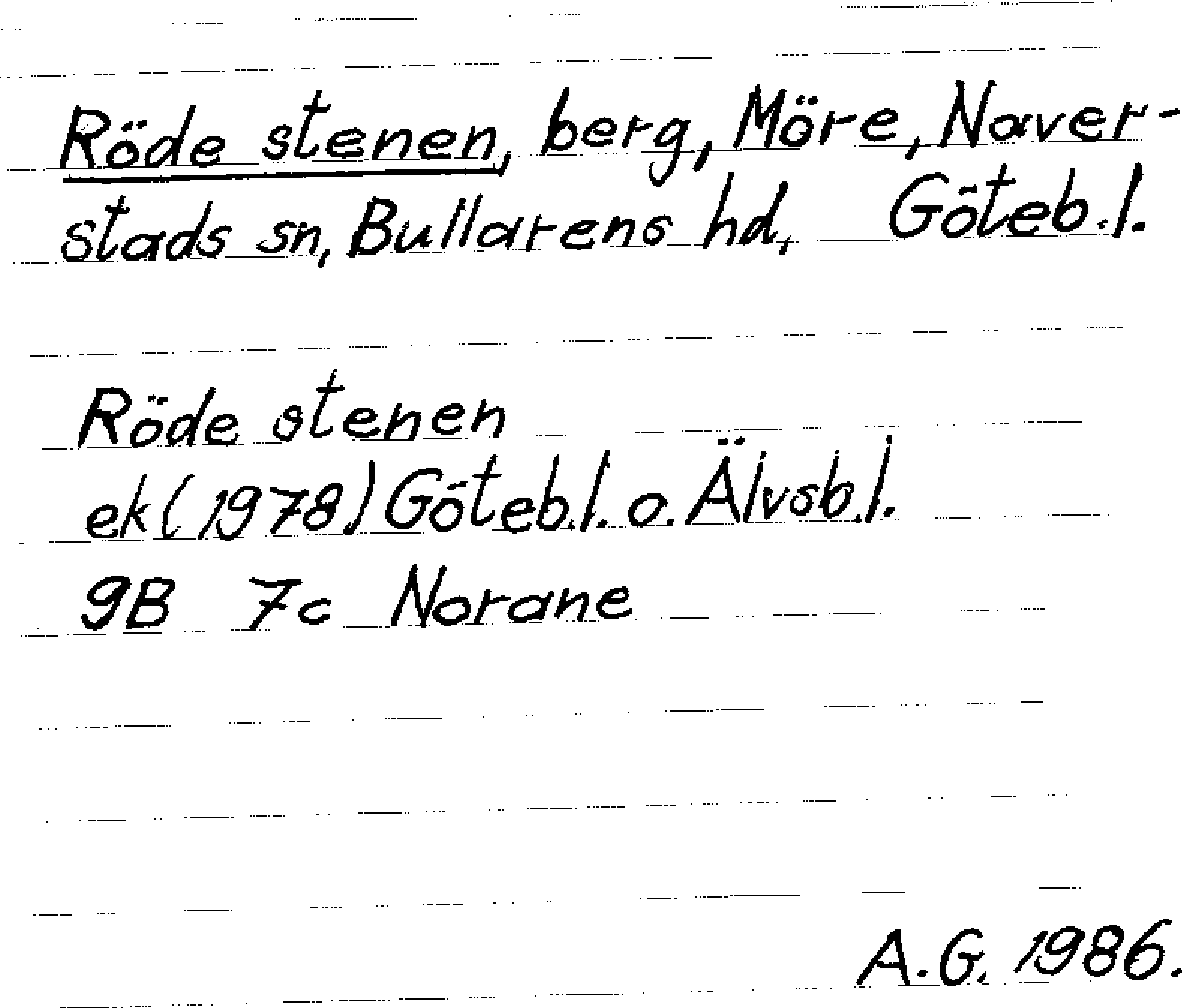 Röde stenen, berg, Möre, Naver-
stads sn, Bullarens hd, Göteb.l.
Röde stenen
ek (1978) Göteb.l. o. Älvsb.l.
9B 7c Norane
A.G. 1986.